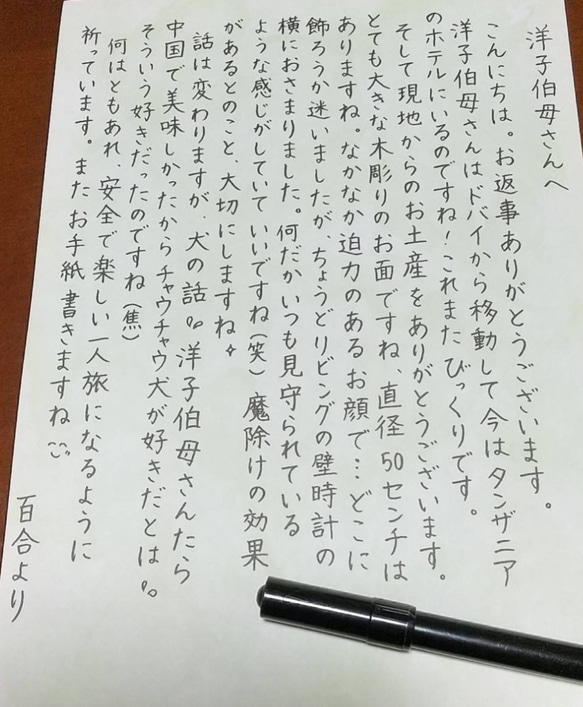 洋子伯母さんへ
こんにちは。お返事ありがとうございます。
洋子伯母さんはドバイから移動して今はタンザニア
のホテルにいるのですね！これまたびっくりです。
そして現地からのお土産をありがとうございます。
とても大きな木彫りのお面ですね、直径50センチは
ありますね。なかなか迫力のあるお顔で…どこに
飾ろうか迷いましたが、ちょうどリビングの壁時計の
横におさまりました。何だかいつも見守られている
ような感じがしていていいですね(笑)魔除けの効果
があるとのこと、大切にしますね✧
話は変わりますが、犬の話。洋子伯母さんたら
中国で美味しかったからチャウチャウ犬が好きだとは。
そういう好きだったのですね(焦)
何はともあれ、安全で楽しい一人旅になるように
祈っています。またお手紙書きますね
百合より